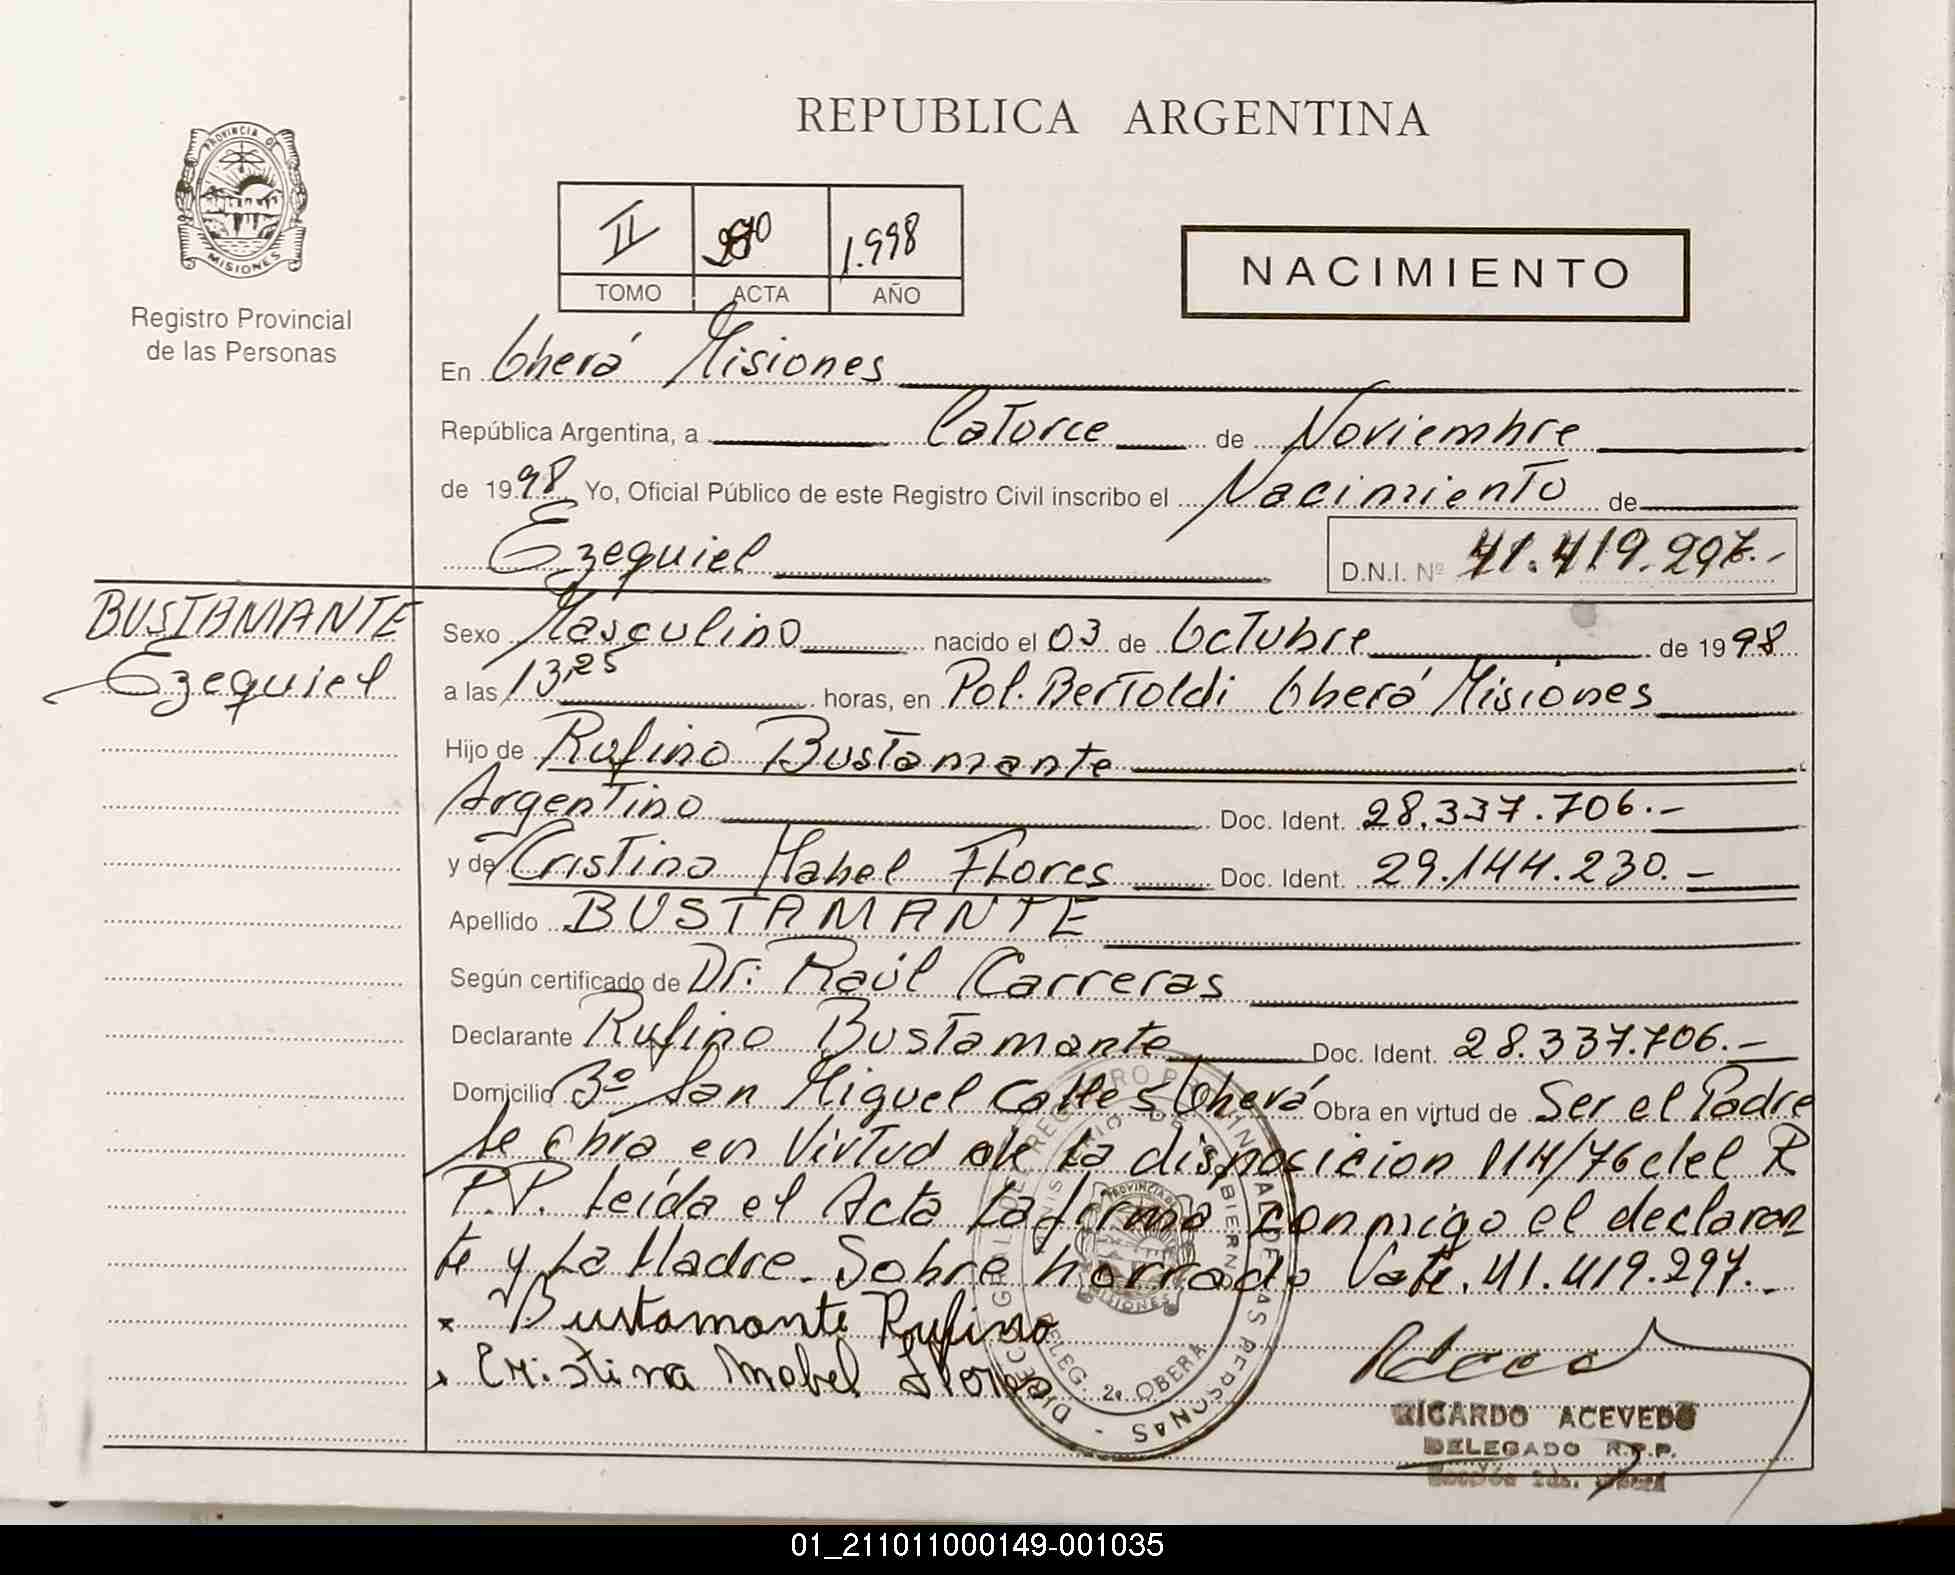 REPUBLICA ARGENTINA
PROVINCIA DE
MISIONES
Registro Provincial
de las Personas
II 1.998
TOMO ACTA AÑO
NACIMIENTO
En Oberá Misiones
República Argentina, a Catorce de Noviembre
de 1998 Yo, Oficial Público de este Registro Civil inscribo el Nacimiento de
Ezequiel D.N.I. Nº 41.419.297.-
BUSTAMANTE
Ezequiel
Sexo Masculino nacido el 03 de Octubre de 1998
a las 13,25 horas, en Pol. Bertoldi Oberá Misiones
Hijo de Rufino Bustamante
Argentino Doc. Ident. 28.337.706.-
y de Cristina Mabel Flores Doc. Ident. 29.144.230.-
Apellido BUSTAMANTE
Según certificado de Dr: Raúl Carreras
Declarante Rufino Bustamante Doc. Ident. 28.337.706.-
Domicilio Bº San Miguel Calle S Oberá Obra en virtud de Ser el Padre
Se obra en Virtud de La disposicion 114/76 del R
P.P. Leída el Acta La firma conmigo el declaran
te y La Madre. Sobre borrado Vale. 41.419.297.-
x Bustamante Rufino
x Cristina Mabel Flores
DIRECC. GRAL. DE REGISTRO PROVINCIAL DE LAS PERSONAS -
MINISTERIO DE GOBIERNO
PROVINCIA DE
MISIONES
DELEG. 2a OBERA
RICARDO ACEVEDO
DELEGADO R.P.P.
01_211011000149-001035